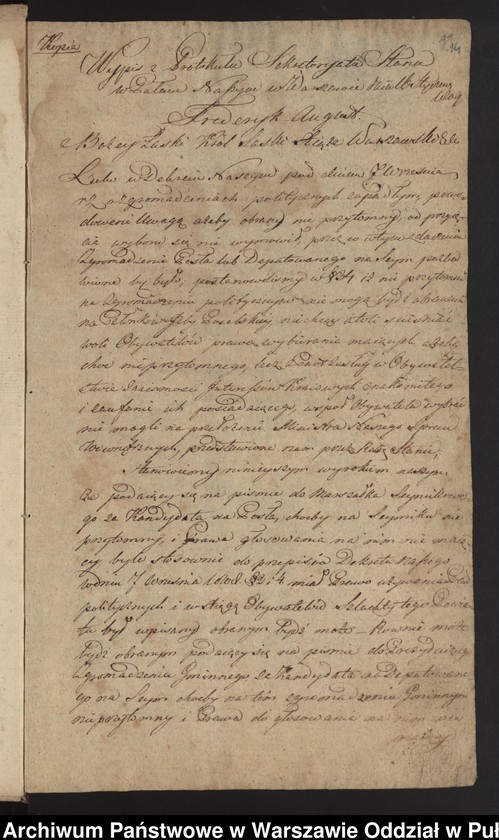 Kopia
Wypis z Protokułu Sekretaryatu Stanu
w Pałacu Naszym w Warszawie
Fryderyk August
z Bożey Łaski Król Saski Xiąże Warszawski &c
Lubo w Dekrecie Naszym pod dniem 7 Września
r. z. o zgromadzeniach politycznych zapadłym, powo
dowani uwagą ażeby obrany nie przytomny od przyię
cia wyboru się nie wymówił, przez co w tym zdarzeniu
Zgromadzenie Posła lub Deputowanego na Seym pozba
wione by było, postanowiliśmy w iż nie przytomni
na Zgromadzeniu politycznym nie mogą bydź obranemi
na Członków Izby Poselskiey, nie chcąc atoli ścieśniać
woli Obywatelów prawo wybierania maiących, ażeby
choć nieprzytomnego, lecz z zasług w Obywatel
stwie znaiomości Interesów Kraiowych znakomitego
i zaufanie ich posiadaiącego, współ Obywatela wybrać
nie mogli na przełożenie Ministra Naszego Spraw
Wewnętrznych, przedstawione nam przez Radę Stanu,
Stanowiemy ninieyszym wyrokiem naszym
że podaiący się na piśmie do Marszałka Seymikowe
go za Kandydata na Posła, choćby na Seymiku nie
przytomny, i Prawa głosowania na nim nie maią
cy byle stosownie do przepisów Dekretu Naszego
w dniu 7 Września 1808 miał Prawo używania
politycznych i w Xięgę Obywatelów Szlachty tego Powia
tu był wpisany obranym bydź może – Równie może
bydź obranym podaiący się na piśmie do Prezyduiącego
Zgromadzenia Gminnego za Kandydata na Deputowane
go na Seym choćby na tém zgromadzeniu Gminnym
nieprzytomny i Prawa do głosowania na nim nie
Archiwum Państwowe w Warszawie Oddział w Puł